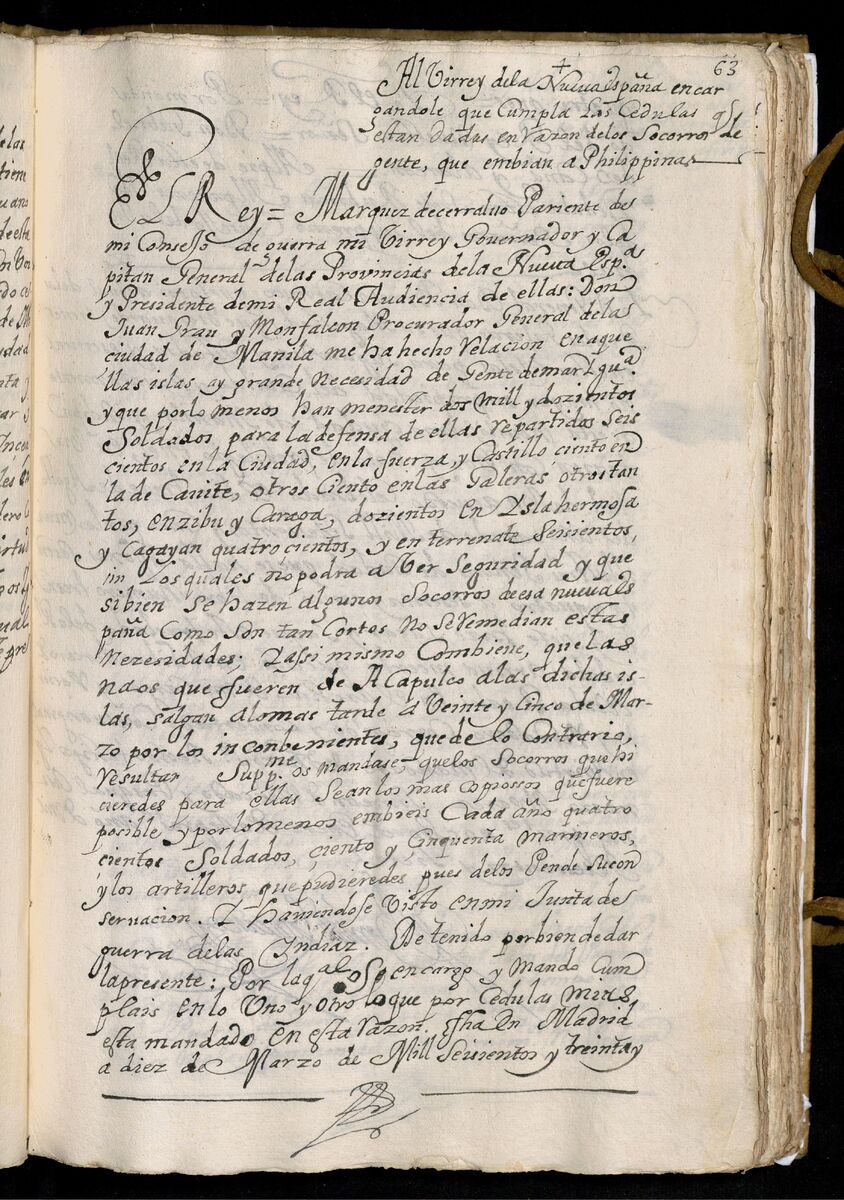 63
+
Al Virrey dela Nueva españa encar
gandole que Cumpla Las Cedulas q̃
estan dadas en Razon delos Socorros de
gente, que embian a Philippinas
EL Rey = Marquez decerralvo Pariente des
mi Consejo de guerra mi Virrey Governador y Ca
pitan General delas Provincias dela Nueva Esp.ª
y Presidente demi Real Audiencia de ellas: Don
Juan Grau y Monfalcon Procurador General dela
ciudad de Manila me ha hecho Relacion en aque
llas islas ay grande necesidad de Gente demar y gu.ª
y que porlo menos han menester dos Mill y dozientos
Soldados para la defensa de ellas Repartidos Seis
cientos en la Ciudad, en la fuerza, y Castillo, ciento en
la de Cavite, otros Ciento en las Galeras, otros tan
tos, en zibu y Caraga, dozientos en Ysla hermosa
y Cagayan quatro cientos, y en terrenate Seisientos,
in Los quales no podra aver Seguridad y que
si bien Se hazen algunos Socorros de esa nueva es
paña Como Son tan Cortos No Se Remedian estas
Nezesidades; Yassi mismo Combiene, que las
naos que fueren de Acapulco alas dichas is-
las, salgan alomas tarde a Veinte y Cinco de Mar-
zo por los inconbenientes, que de lo Contrario,
resultan Supp.me os mandase, quelos Socorros que hi
cieredes para ellas Sean los mas copiossos que fuere
posible y por lo menos embieis Cada año quatro
cientos Soldados, ciento y Cinquenta marineros,
y los artilleros que pudieredes pues de los Pende Su con
servacion. Y haviendose Visto en mi Junta de
guerra delas Indiaz. He tenido por bien de dar
la presente; Por la q̃al os encargo y Mando Cum
plais en lo Uno y otro lo que por Cedulas mias
esta mandado en esta razon. fha En Madrid
a diez de Marzo de Mill Seisientos y treinta y